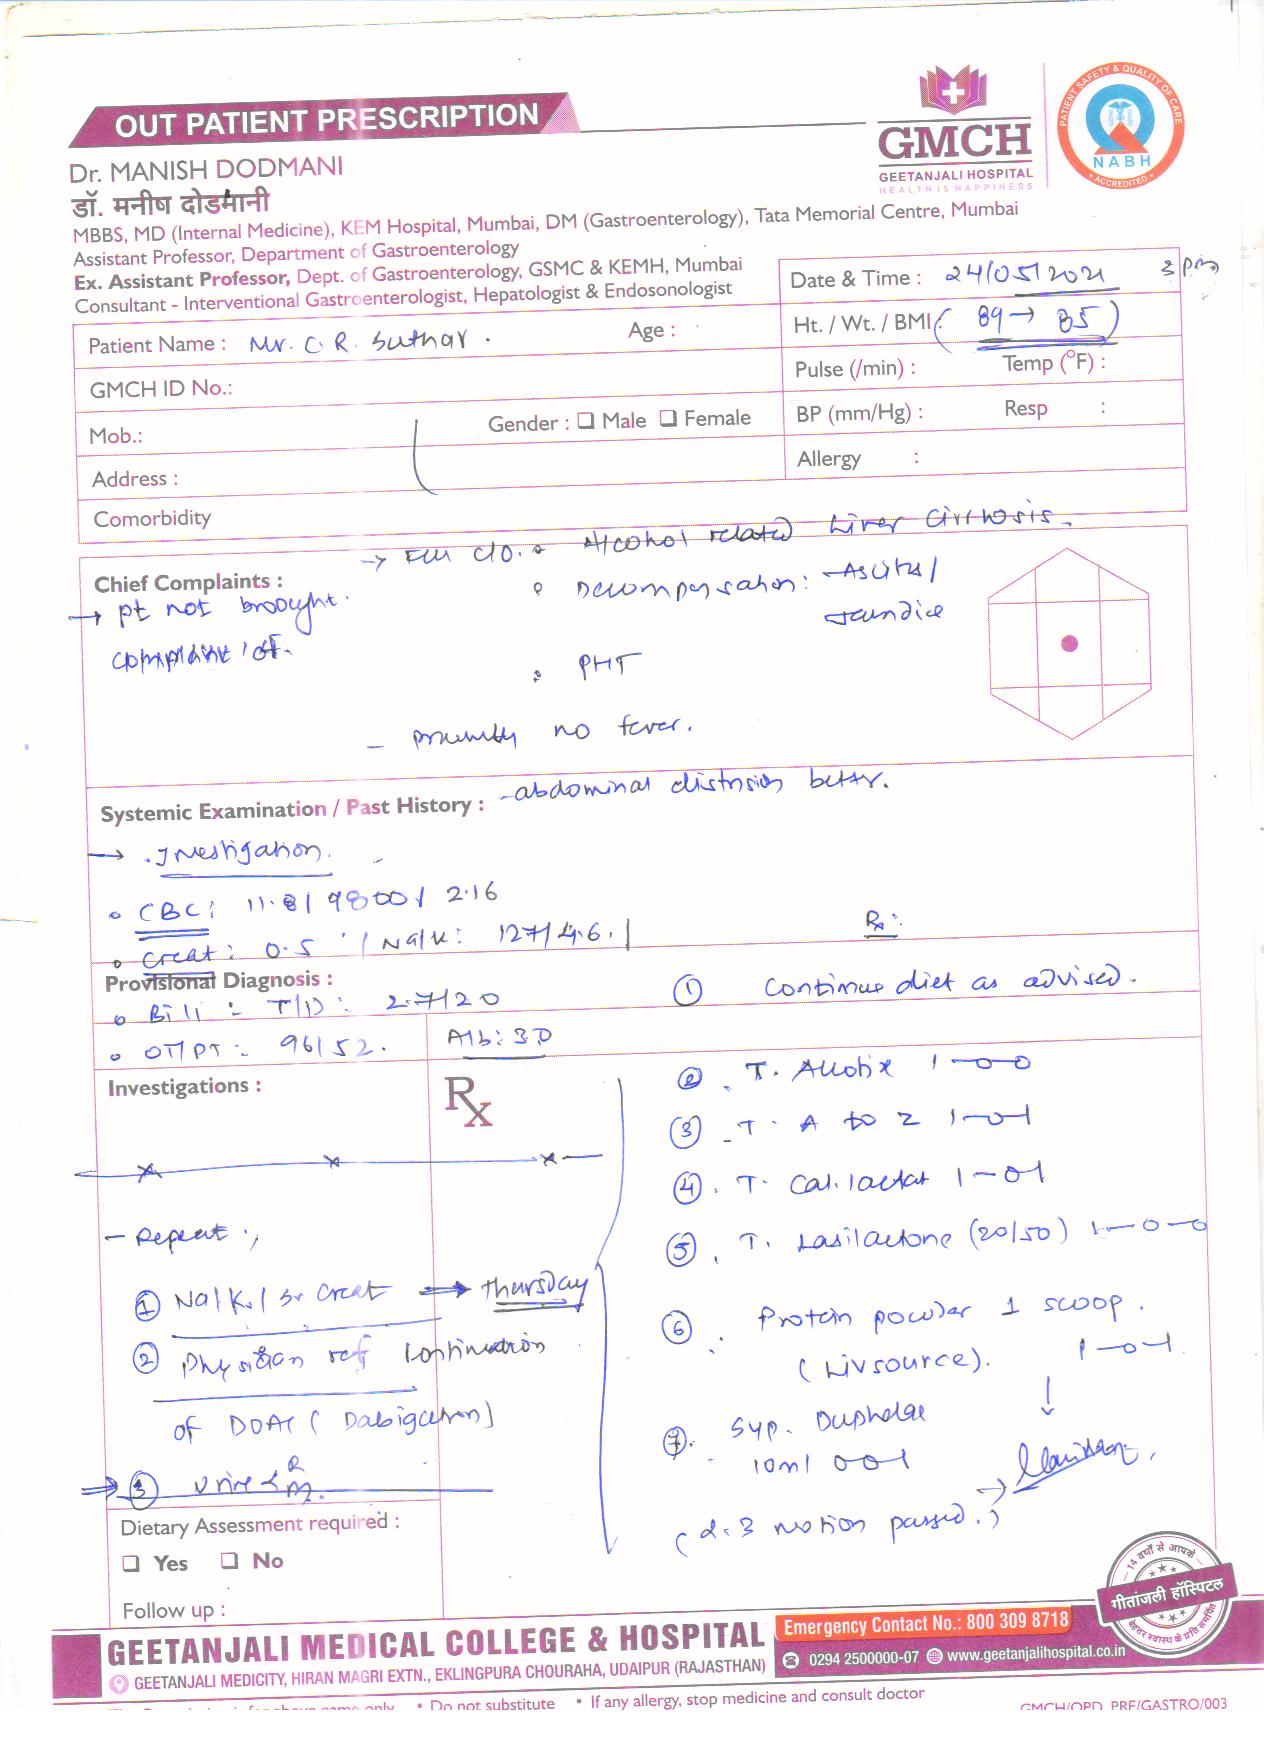 OUT PATIENT PRESCRIPTION
GMCH
GEETANJALI HOSPITAL
HEALTH IS HAPPINESS
PATIENT SAFETY & QUALITY OF CARE
NABH
ACCREDITED
Dr. MANISH DODMANI
डॉ. मनीष दोडमानी
MBBS, MD (Internal Medicine), KEM Hospital, Mumbai, DM (Gastroenterology), Tata Memorial Centre, Mumbai
Assistant Professor, Department of Gastroenterology
Ex. Assistant Professor, Dept. of Gastroenterology, GSMC & KEMH, Mumbai
Consultant - Interventional Gastroenterologist, Hepatologist & Endosonologist
Date & Time : 24/05/2021 3 pm
Patient Name : Mr. C. R. Suthar. Age :
Ht. / Wt. / BMI : (89 → 85)
GMCH ID No.:
Pulse (/min) : Temp (°F) :
Mob.: Gender : ☐ Male ☐ Female
BP (mm/Hg) : Resp :
Address :
Allergy :
Comorbidity
→ c/o. Alcohol related Liver Cirrhosis.
Chief Complaints :
Decompensation: Ascites/
Jaundice
→ pt not brought.
PHT
- no fever.
Systemic Examination / Past History : -abdominal distension better.
→ Investigation.
CBC: 11.8/9800/2.16
Creat: 0.5 / Na/K: 127/4.6.
Rx:
Provisional Diagnosis :
Bili : T/D: 2.7/20
OT/PT : 96/52. Alb: 3.0
① Continue diet as advised.
Investigations :
Rx
② T. Allotix 1-0-0
③ T. A to Z 1-0-1
④ T. 1-0-1
⑤ T. Lasilactone (20/50) 1-0-0
⑥ Protein powder 1 scoop.
(Livsource). 1-0-1
⑦ Syp. Duphalac
10ml 0 0 1
(2-3 motion passed.)
- Repeat :
① Na/K/ Sr Creat → Thursday
② Physician ref continuation
of DOAC (Dabigatran)
③ Urine R/M.
Dietary Assessment required :
☐ Yes ☐ No
Follow up :
14 वर्षों से आपके
गीतांजली हॉस्पिटल
बेहतर स्वास्थ के प्रति समर्पित
GEETANJALI MEDICAL COLLEGE & HOSPITAL
GEETANJALI MEDICITY, HIRAN MAGRI EXTN., EKLINGPURA CHOURAHA, UDAIPUR (RAJASTHAN)
Emergency Contact No.: 800 309 8718
0294 2500000-07 www.geetanjalihospital.co.in
• Do not substitute • If any allergy, stop medicine and consult doctor
GMCH/OPD PRE/GASTRO/003